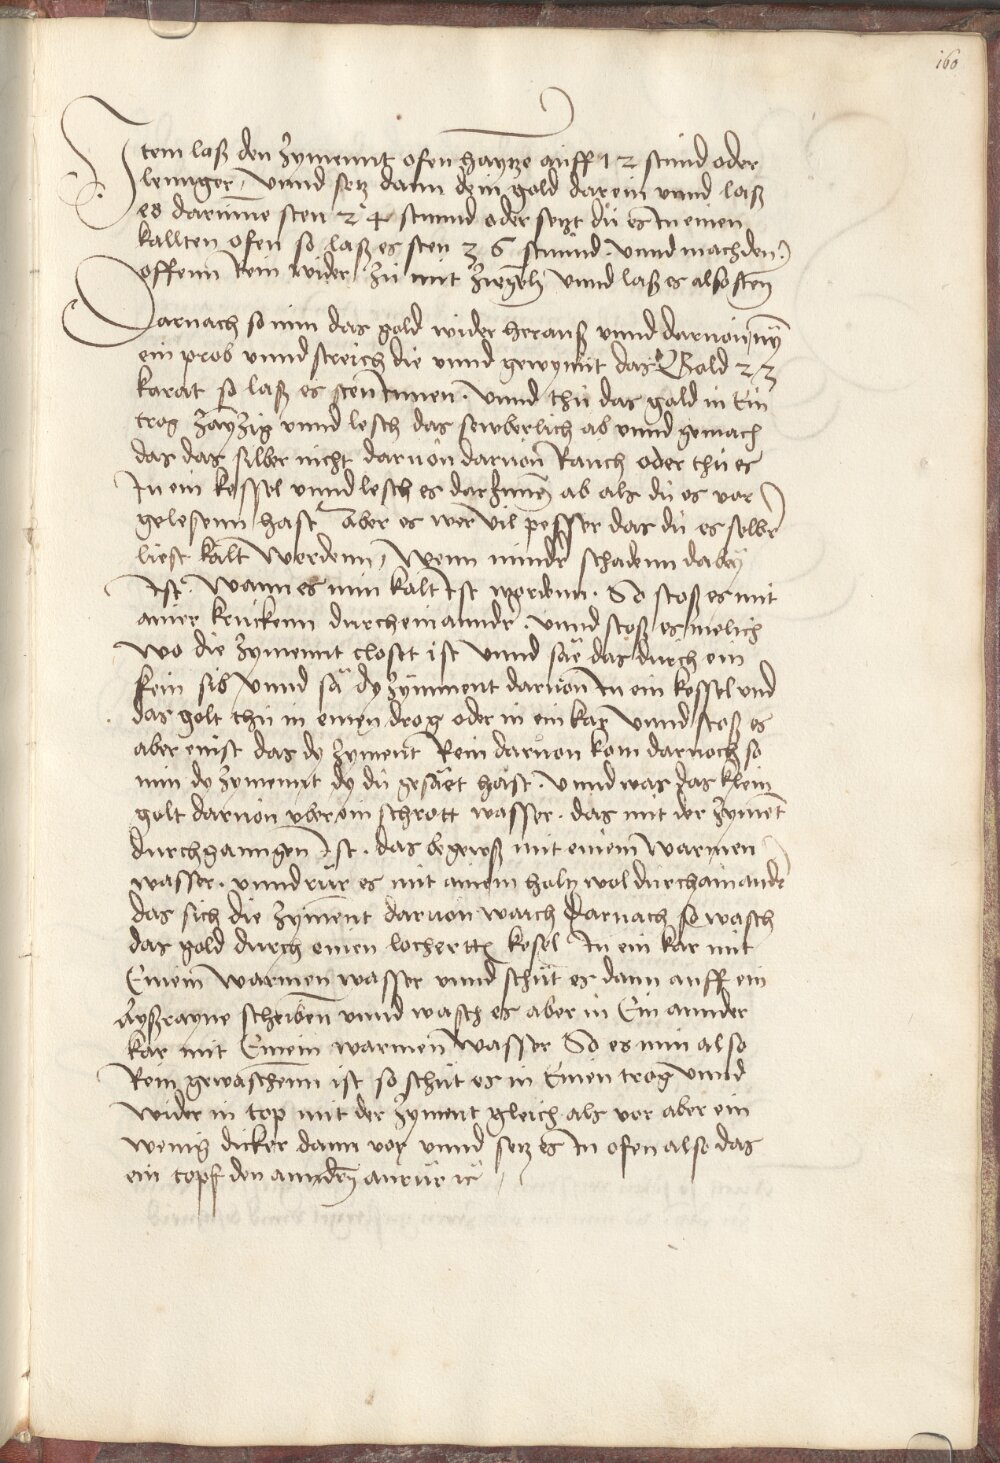 160
Item laß den zymennt ofen haytze auff 12 stund oder
lennger, vnnd setz dann dein gold darein vnnd laß
es darinne sten 24 stunnd oder setzt du es in einen
kallten ofen so laß es sten 36 stunnd. vnnd mach den
offenn Rein wider zu mit ziegeln vnnd laß es also sten
Darnach so nim das gold wider herauß vnnd daruon nÿm
ein prob vnnd streich die vnnd gewynnt das Gold 23
karat so laß es sten Innen. vnnd thu das gold in Ein
trog vnnd lesch das sewberlich ab vnnd gemach
das das silber nicht daruon daruon Rauch oder thu es
In ein kessel vnnd lesch es darInnen ab als du es vor
gelesenn hast aber es wer vil pesser das du es selber
liest kalt werdenn, wenn minder schadenn dabey
Ist. Wann es nun kalt Ist wordenn. So stoß es mit
ainer kruckenn durcheinannder. vnnd stoß es molich
wo die zymennt closet ist vnnd säe das durch ein
sib vnnd sä dy zymment daruon In ein kessel vnd
das golt thu in einen drog oder in ein kar vnnd stoß es
aber einst das dy zyment Rein daruon kom darnoch so
nim dy zymennt dy du gesäet hast. vnnd was das klein
golt daruon vber ein schrott wasser. das mit der zyment
durchganngen Ist. das begewß mit einem warmen
wasser. vnnd rür es mit ainem holtz wol durchainander
das sich die zyment daruon waich darnach so wasch
das gold durch einen lochertten kesel In ein kar mit
Einem warmen wasser vnnd schüt es dann auff ein
scheiben vnnd wasch es aber in Ein annder
kar mit Einem warmen wasser So es nun also
Rein gewaschenn ist so schüt es in Einen trog vnnd
wider in top mit der zyment gleich als vor aber ein
wenig dicker dann vor vnnd setz es In ofen also das
ein topf den anndern anrür ꝛc